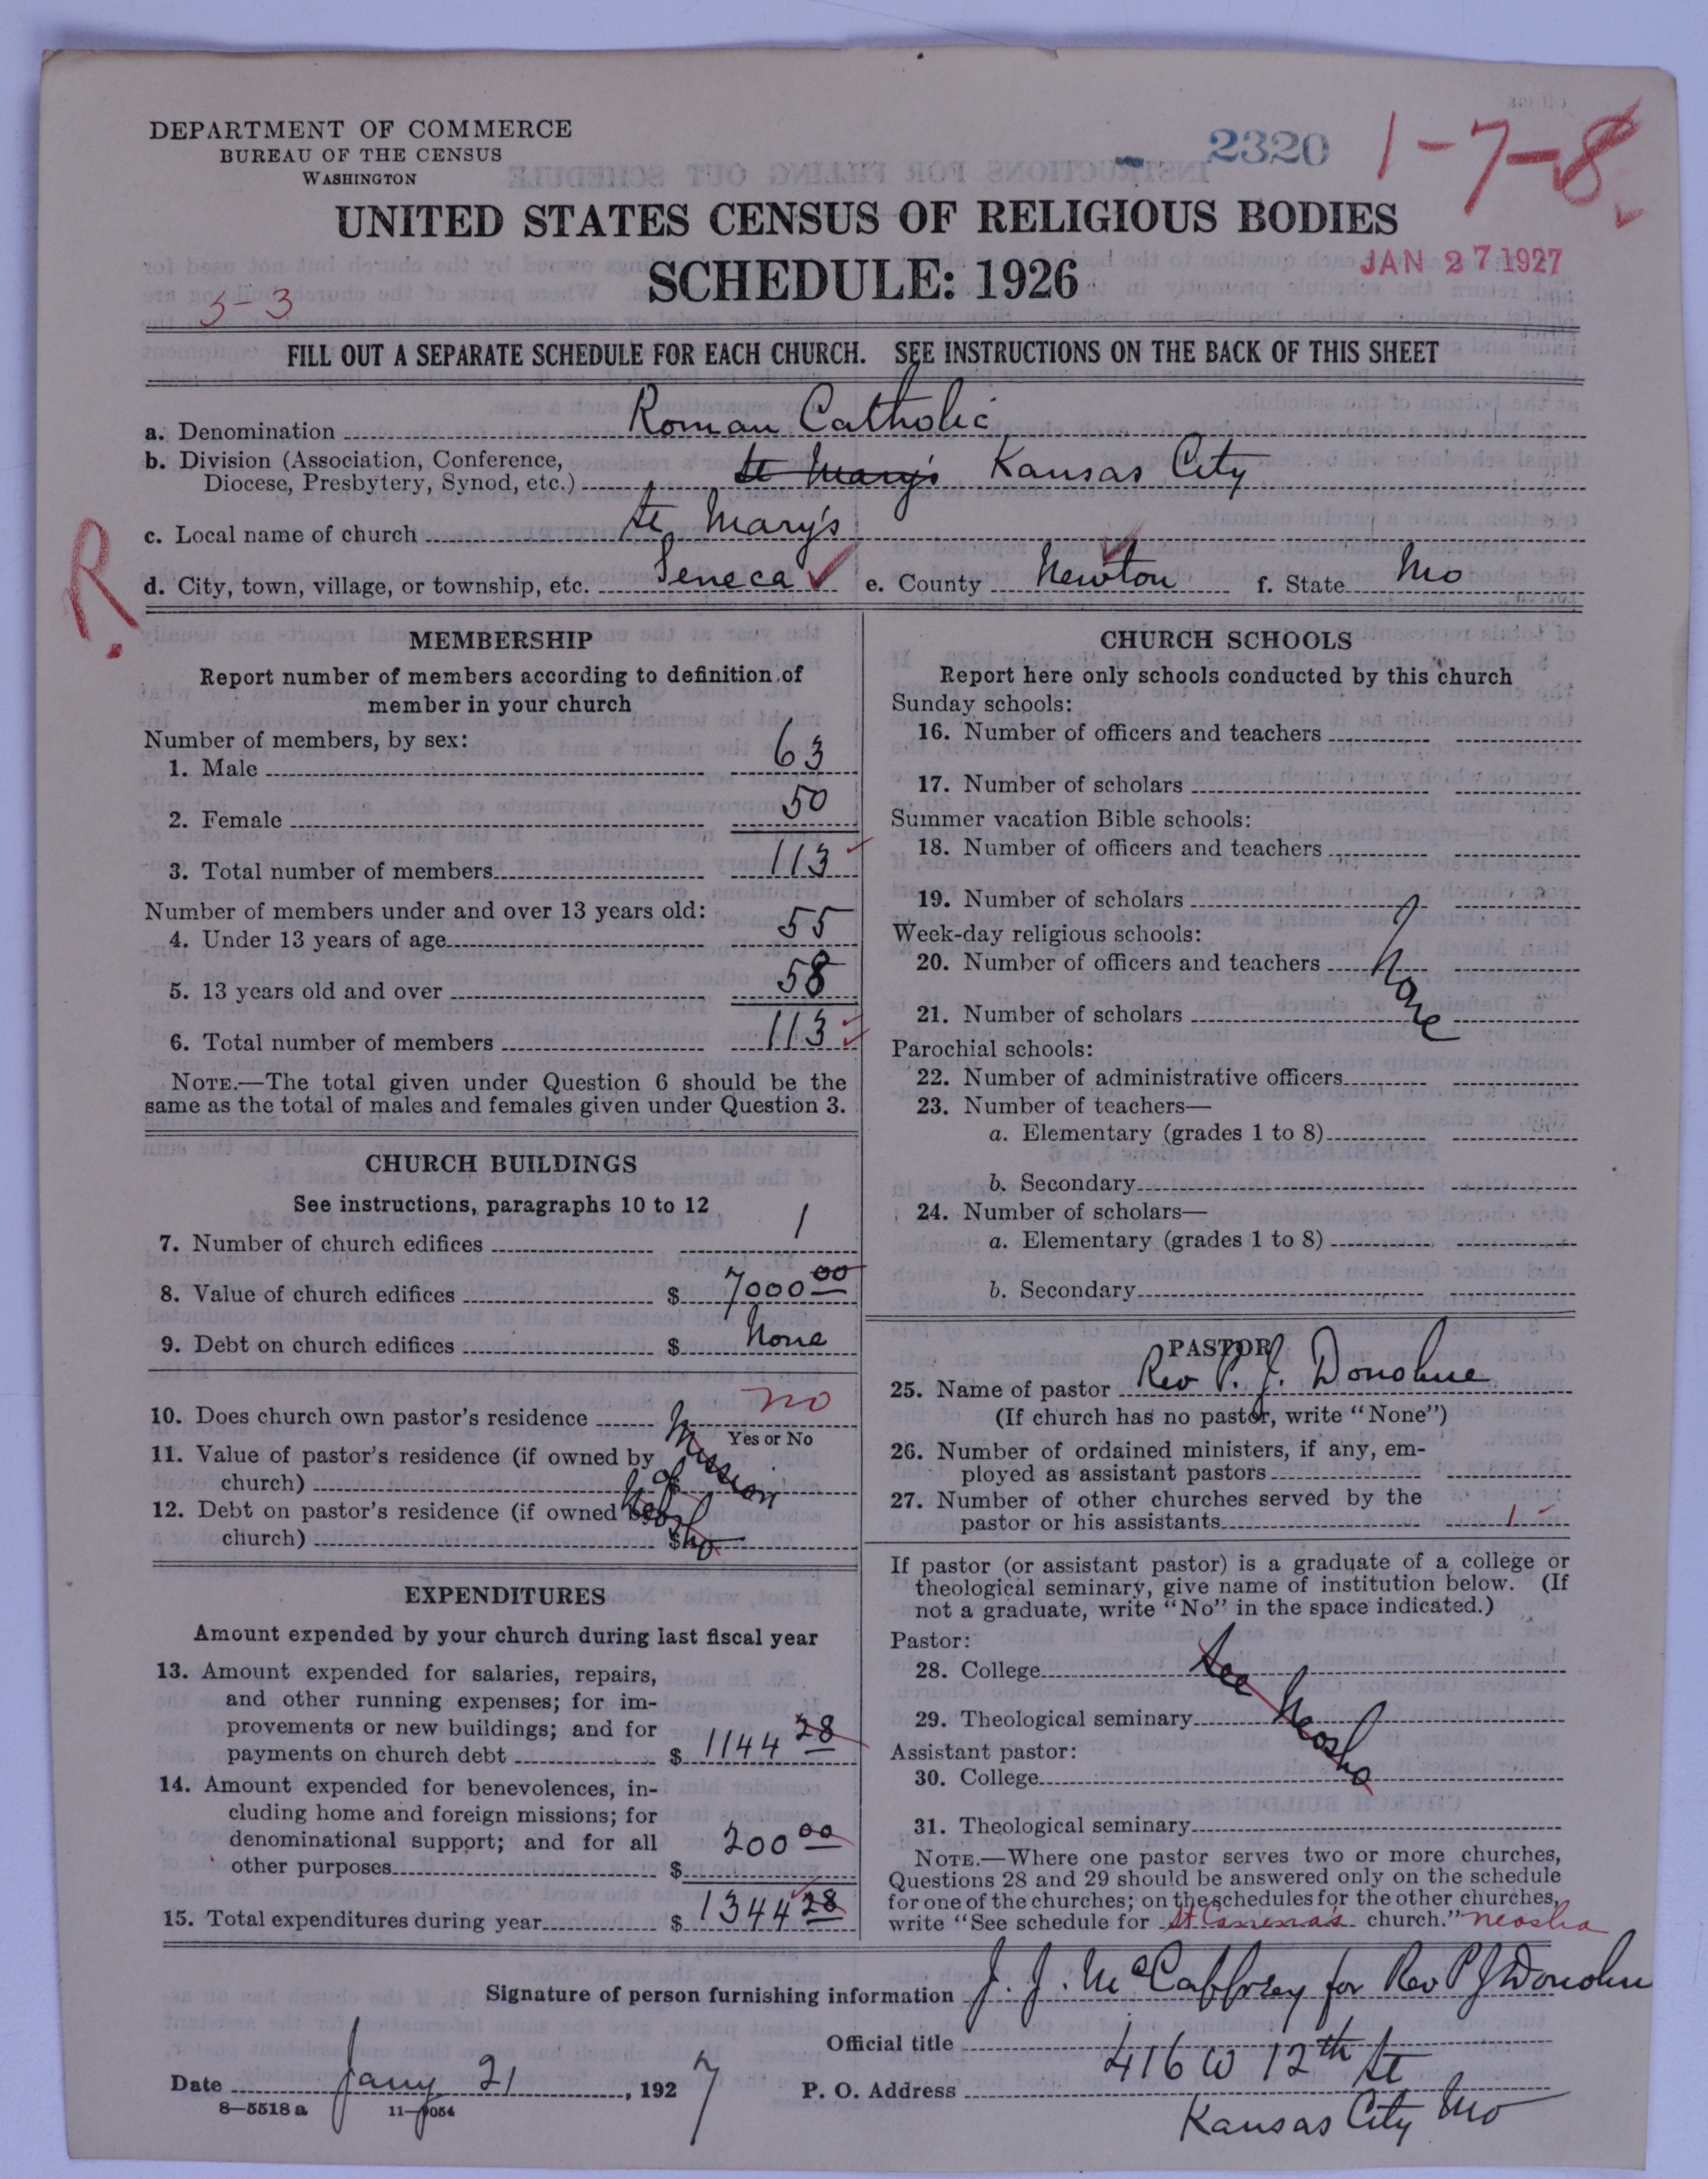 DEPARTMENT OF COMMERCE
BUREAU OF THE CENSUS
WASHINGTON
2320
1-7-8
UNITED STATES CENSUS OF RELIGIOUS BODIES
SCHEDULE: 1926
JAN 27 1927
5-3
FILL OUT A SEPARATE SCHEDULE FOR EACH CHURCH. SEE INSTRUCTIONS ON THE BACK OF THIS SHEET
a. Denomination Roman Catholic
b. Division (Association, Conference,
Diocese, Presbytery, Synod, etc.) St Mary's Kansas City
c. Local name of church St Mary's
R.
d. City, town, village, or township, etc. Seneca e. County Newton f. State Mo
MEMBERSHIP
Report number of members according to definition of
member in your church
Number of members, by sex:
1. Male 63
2. Female 50
3. Total number of members 113
Number of members under and over 13 years old:
4. Under 13 years of age 55
5. 13 years old and over 58
6. Total number of members 113
NOTE.—The total given under Question 6 should be the
same as the total of males and females given under Question 3.
CHURCH BUILDINGS
See instructions, paragraphs 10 to 12
7. Number of church edifices 1
8. Value of church edifices $ 7000 00
9. Debt on church edifices $ None
10. Does church own pastor's residence no
Yes or No
11. Value of pastor's residence (if owned by
church) $
12. Debt on pastor's residence (if owned by
church) $
Mission
of
Neosho
EXPENDITURES
Amount expended by your church during last fiscal year
13. Amount expended for salaries, repairs,
and other running expenses; for im-
provements or new buildings; and for
payments on church debt $ 1144 28
14. Amount expended for benevolences, in-
cluding home and foreign missions; for
denominational support; and for all
other purposes $ 200 00
15. Total expenditures during year $ 1344 28
CHURCH SCHOOLS
Report here only schools conducted by this church
Sunday schools:
16. Number of officers and teachers
17. Number of scholars
Summer vacation Bible schools:
18. Number of officers and teachers
19. Number of scholars
Week-day religious schools:
20. Number of officers and teachers
None
21. Number of scholars
Parochial schools:
22. Number of administrative officers
23. Number of teachers—
a. Elementary (grades 1 to 8)
b. Secondary
24. Number of scholars—
a. Elementary (grades 1 to 8)
b. Secondary
PASTOR
25. Name of pastor Rev P. J. Donohue
(If church has no pastor, write "None")
26. Number of ordained ministers, if any, em-
ployed as assistant pastors
27. Number of other churches served by the
pastor or his assistants 1
If pastor (or assistant pastor) is a graduate of a college or
theological seminary, give name of institution below. (If
not a graduate, write "No" in the space indicated.)
Pastor:
28. College
See Neosho
29. Theological seminary
Assistant pastor:
30. College
31. Theological seminary
NOTE.—Where one pastor serves two or more churches,
Questions 28 and 29 should be answered only on the schedule
for one of the churches; on the schedules for the other churches,
write "See schedule for St church." Neosho
Signature of person furnishing information J. J. McCaffrey for Rev P J Donohue
Official title
Date Jany 21, 1927
P. O. Address 416 W 12th St
Kansas City Mo
8—5518 a 11—9054